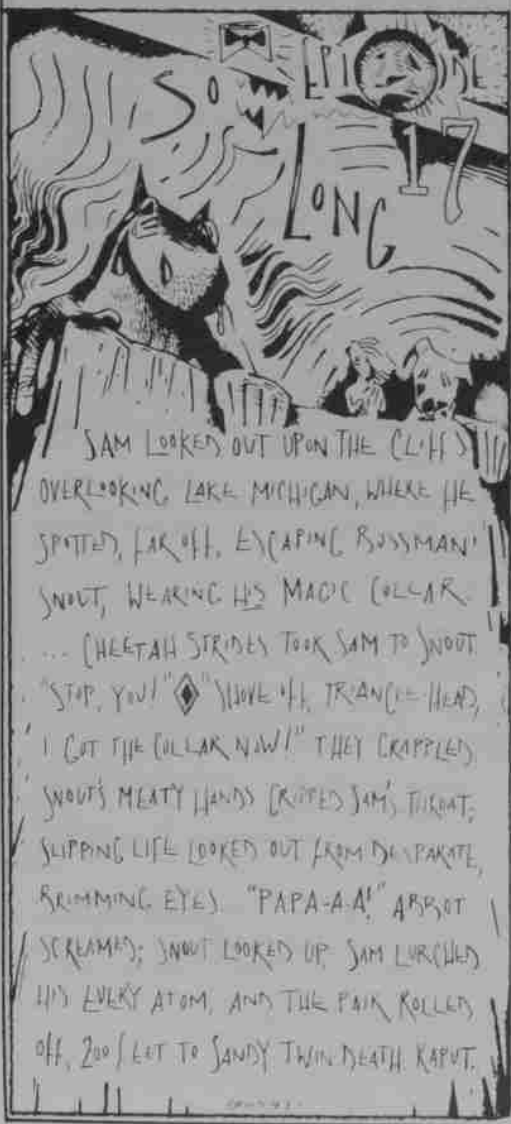 SO LONG
EPISODE 17
SAM LOOKED OUT UPON THE CLIFFS
OVERLOOKING LAKE MICHIGAN, WHERE HE
SPOTTED, FAR OFF, ESCAPING BUSSMAN'
SNOUT, WEARING HIS MAGIC COLLAR.
... CHEETAH STRIDES TOOK SAM TO SNOUT.
"STOP, YOU!" "SHOVE OFF, TRIANGLE-HEAD,
I GOT THE COLLAR NOW!" THEY GRAPPLED.
SNOUT'S MEATY HANDS GRIPPED SAM'S THROAT;
SLIPPING LIFE LOOKED OUT FROM DESPARATE,
BRIMMING EYES. "PAPA-A-A!" ABBOT
SCREAMED; SNOUT LOOKED UP. SAM LURCHED
HIS EVERY ATOM, AND THE PAIR ROLLED
OFF, 200 FEET TO SANDY TWIN DEATH. KAPUT.